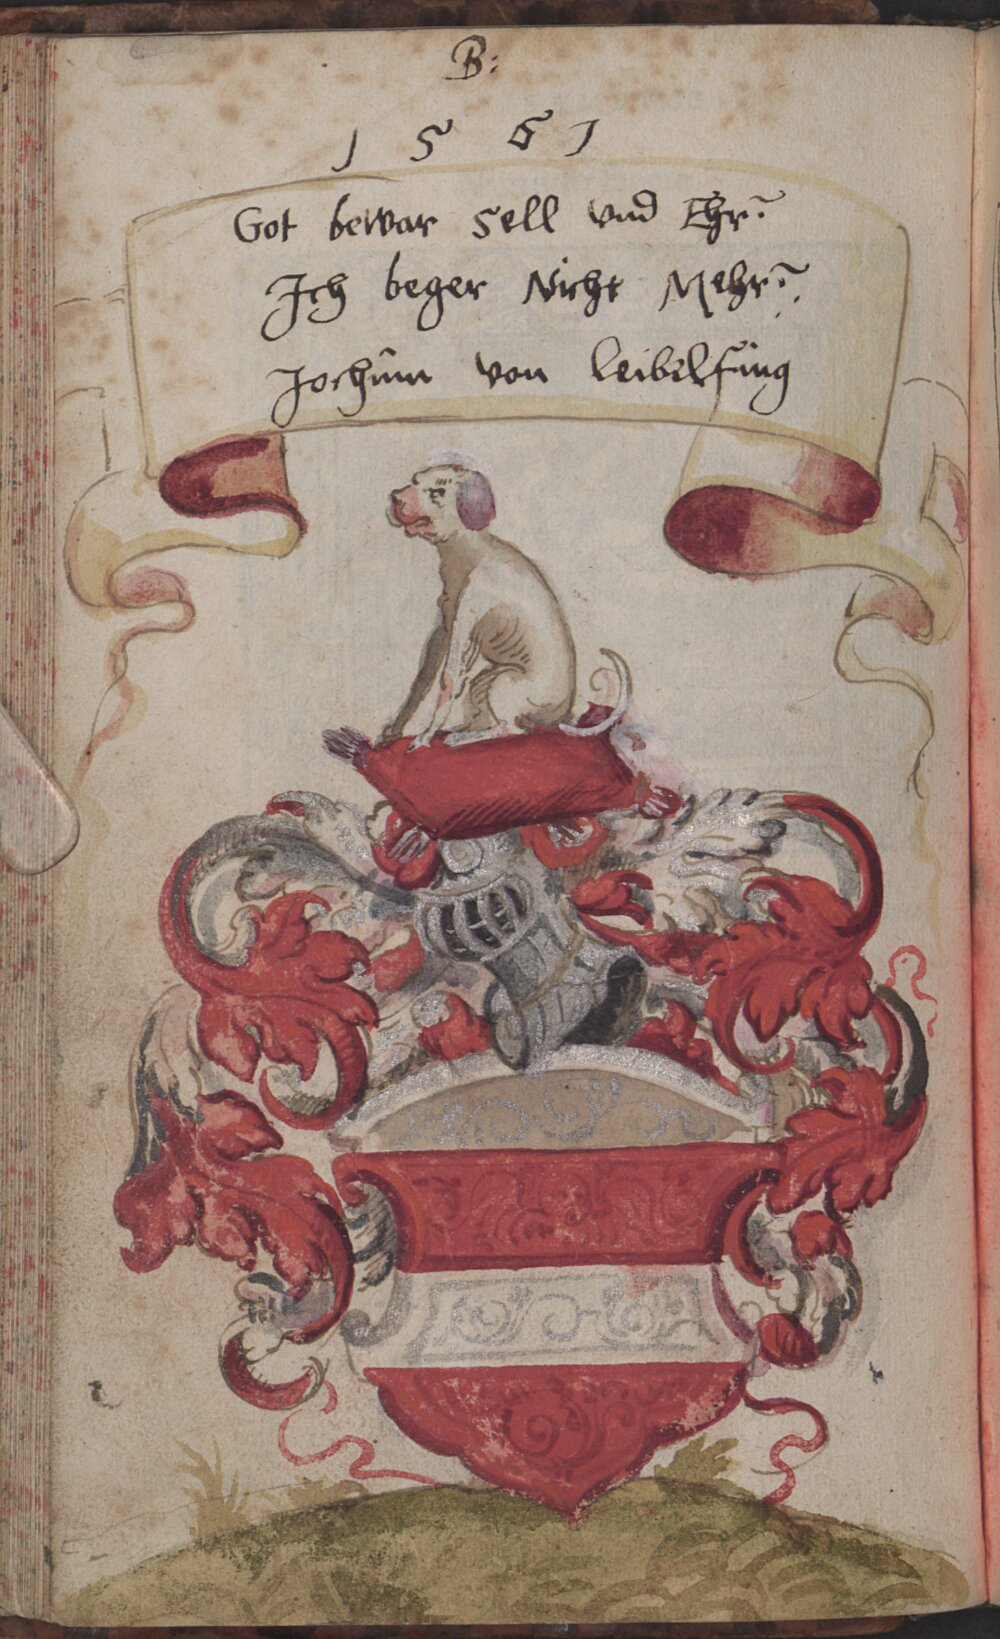 B:
1561
Got bewar Sell vnd Ehr
Ich beger Nicht Mehr.
Jochim von Leibelfing